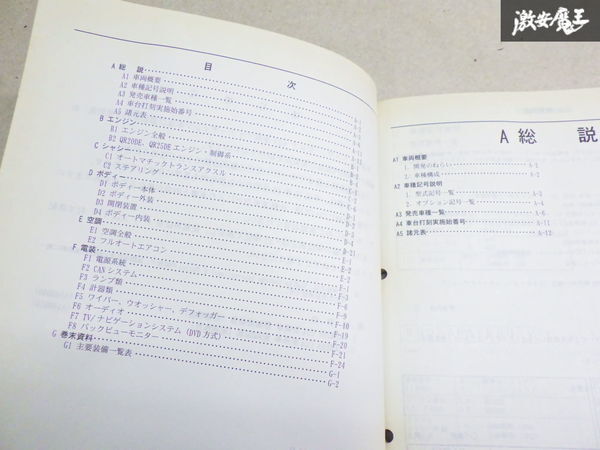 激安魔王
目次
A 総説 A-1
A1 車両概要
A2 車種記号説明
A3 発売車種一覧
A4 車台打刻実施始番号
A5 諸元表
B エンジン
B1 エンジン全般
B2 QR20DE、QR25DE エンジン・制御系
C シャシー
C1 オートマチックトランスアクスル
C2 ステアリング
D ボディー
D1 ボディー本体
D2 ボディー外装
D3 開閉装置
D4 ボディー内装
E 空調
E1 空調全般
E2 フルオートエアコン
F 電装
F1 電源系統
F2 CANシステム
F3 ランプ類
F4 計器類
F5 ワイパー、ウオッシャー、デフォッガー
F6 オーディオ F-19
F7 TV/ナビゲーションシステム (DVD方式) F-21
F8 バックビューモニター F-24
G 巻末資料 G-1
G1 主要装備一覧表 G-2
A 総説
A1 車両概要
1. 開発のねらい A-2
2. 車種構成 A-2
A2 車種記号説明
1. 型式記号一覧 A-3
2. オプション記号一覧 A-4
A3 発売車種一覧 A-6
A4 車台打刻実施始番号 A-11
A5 諸元表 A-12